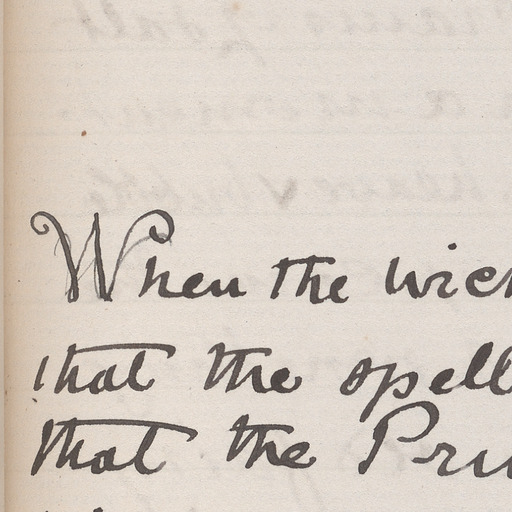 When the wick
that the spell
that the Prin